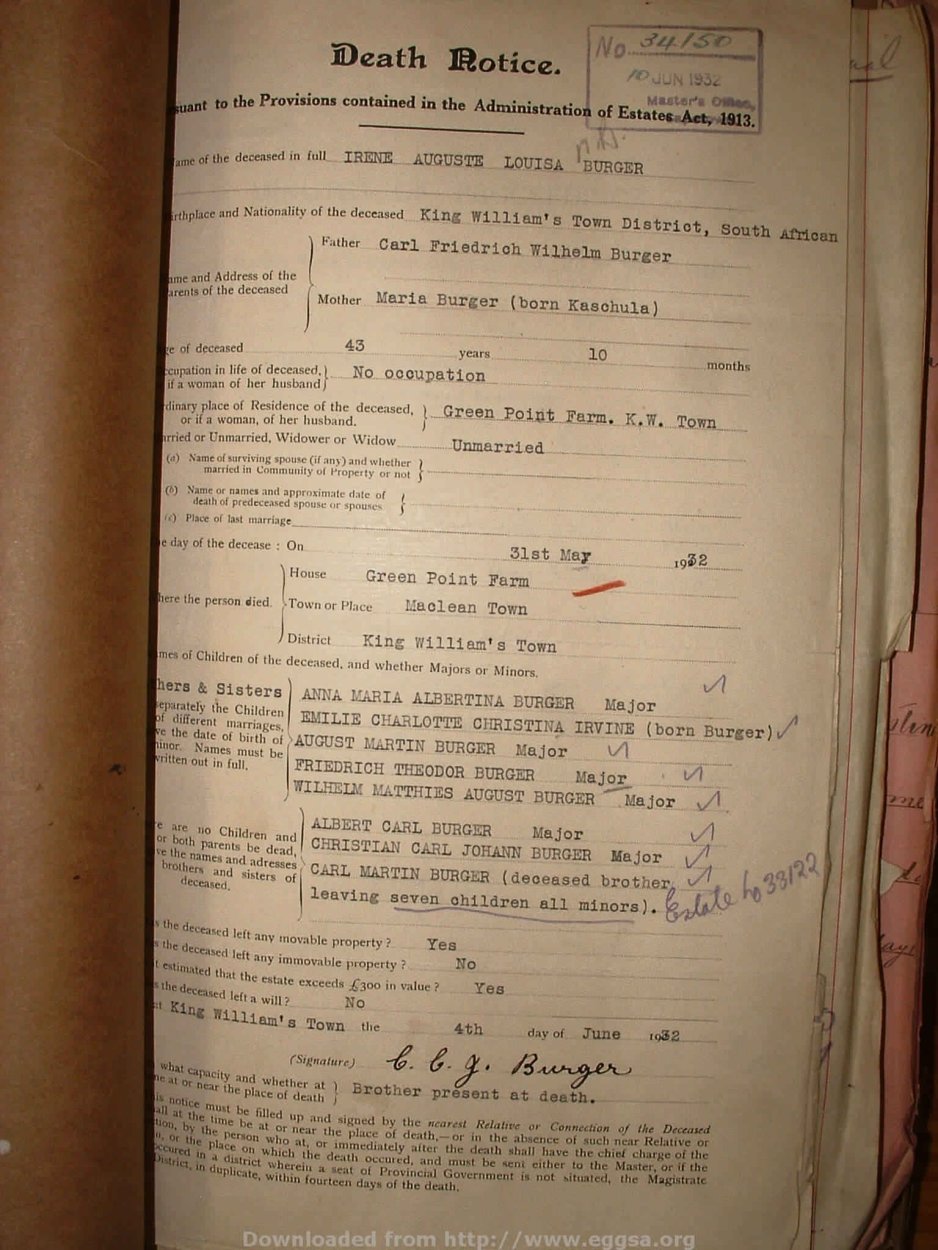 Death Notice.
No. 34150
10 JUN 1932
Master's Office,
suant to the Provisions contained in the Administration of Estates Act, 1913.
ame of the deceased in full IRENE AUGUSTE LOUISA BURGER
irthplace and Nationality of the deceased King William's Town District, South African
Father Carl Friedrich Wilhelm Burger
ame and Address of the
arents of the deceased
Mother Maria Burger (born Kaschula)
ge of deceased 43 years 10 months
ccupation in life of deceased,
if a woman of her husband
No occupation
dinary place of Residence of the deceased,
or if a woman, of her husband.
Green Point Farm. K.W. Town
arried or Unmarried, Widower or Widow Unmarried
(a) Name of surviving spouse (if any) and whether
married in Community of Property or not
(b) Name or names and approximate date of
death of predeceased spouse or spouses
(c) Place of last marriage
e day of the decease : On 31st May 1932
House Green Point Farm
here the person died. Town or Place Maclean Town
District King William's Town
mes of Children of the deceased, and whether Majors or Minors.
hers & Sisters
eparately the Children
of different marriages,
ve the date of birth of
inor. Names must be
written out in full.
ANNA MARIA ALBERTINA BURGER Major
EMILIE CHARLOTTE CHRISTINA IRVINE (born Burger)
AUGUST MARTIN BURGER Major
FRIEDRICH THEODOR BURGER Major
WILHELM MATTHIES AUGUST BURGER Major
e are no Children and
or both parents be dead,
ve the names and adresses
brothers and sisters of
deceased.
ALBERT CARL BURGER Major
CHRISTIAN CARL JOHANN BURGER Major
CARL MARTIN BURGER (deceased brother,
leaving seven children all minors). Estate No 33122
s the deceased left any movable property ? Yes
s the deceased left any immovable property ? No
t estimated that the estate exceeds £300 in value ? Yes
s the deceased left a will ? No
at King William's Town the 4th day of June 1932
(Signature) C. C. J. Burger
what capacity and whether at
me at or near the place of death
Brother present at death.
is notice must be filled up and signed by the nearest Relative or Connection of the Deceased
all at the time be at or near the place of death,—or in the absence of such near Relative or
tion, by the person who at, or immediately after the death shall have the chief charge of the
n, or the place on which the death occured, and must be sent either to the Master, or if the
occured in a district wherein a seat of Provincial Government is not situated, the Magistrate
District, in duplicate, within fourteen days of the death.
Downloaded from http://www.eggsa.org